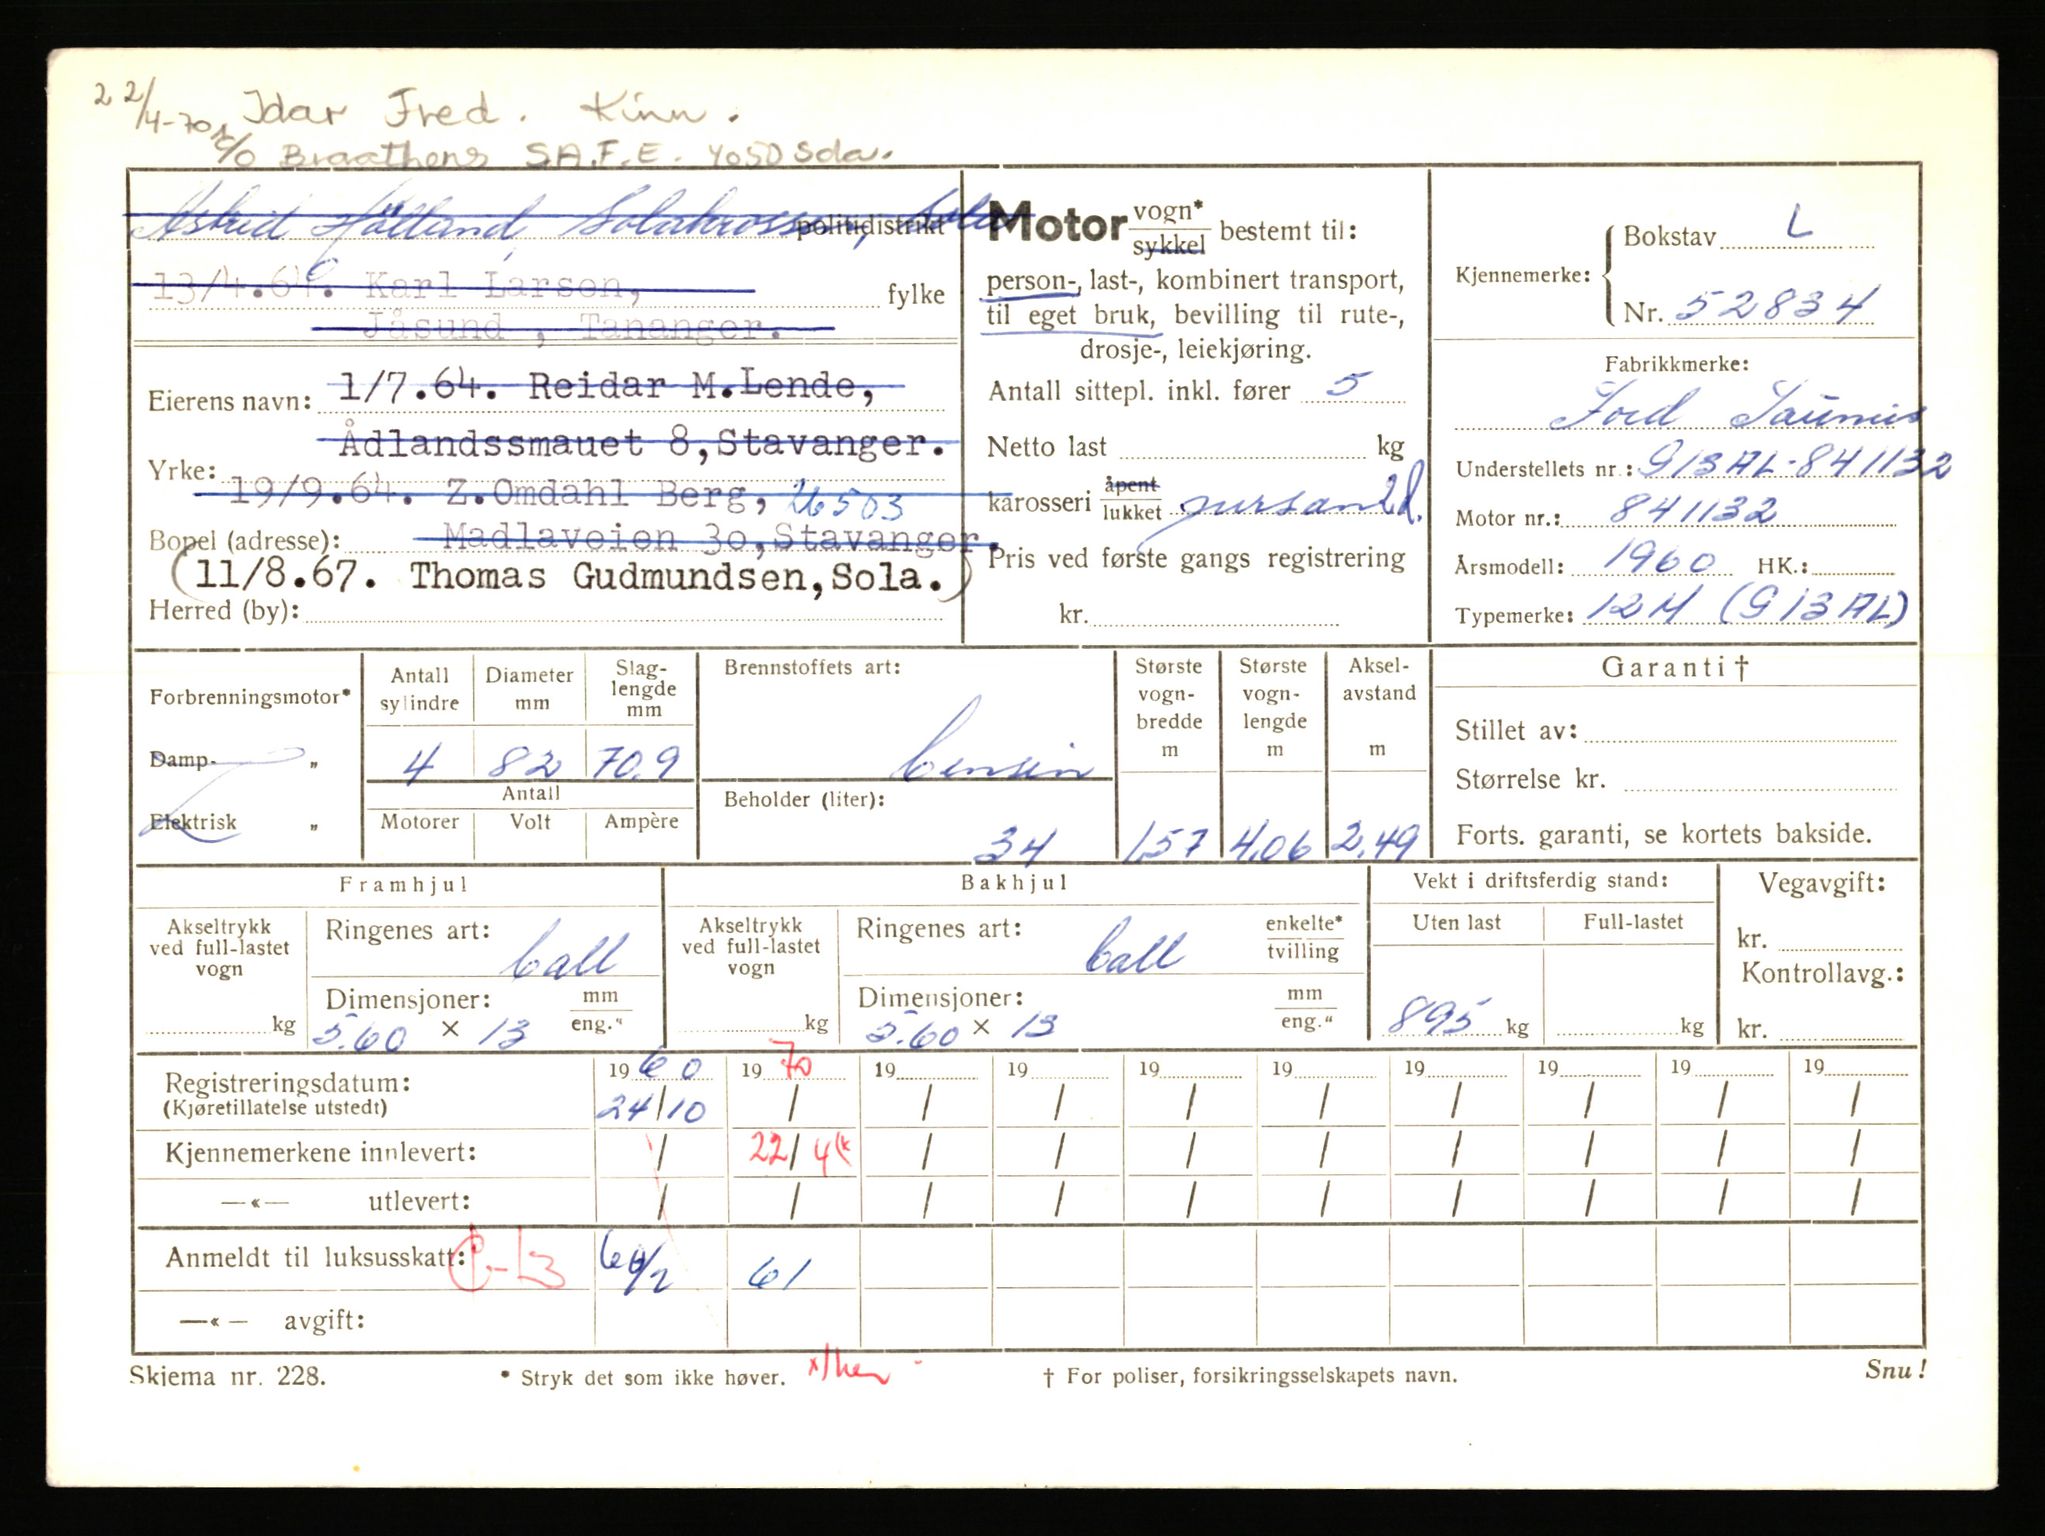 22/4-70 Idar Fred. Kinn.
c/o Braathens S.A.F.E. 4050 Sola.
Astrid Hålland, Solakrossen, Sola
politidistrikt
13/4.64. Karl Larsen,
fylke
Jåsund, Tananger.
Eierens navn: 1/7.64. Reidar M.Lende,
Ådlandssmauet 8,Stavanger.
Yrke:
19/9.64. Z.Omdahl Berg, 26503
Bopel (adresse): Madlaveien 30,Stavanger.
(11/8.67. Thomas Gudmundsen,Sola.)
Herred (by):
Motor vogn* sykkel bestemt til:
person-, last-, kombinert transport,
til eget bruk, bevilling til rute-,
drosje-, leiekjøring.
Antall sittepl. inkl. fører 5
Netto last kg
karosseri åpent lukket person 2d.
Pris ved første gangs registrering
kr.
Kjennemerke: Bokstav L
Nr. 52834
Fabrikkmerke:
Ford Taunus
Understellets nr.: G13AL-841132
Motor nr.: 841132
Årsmodell: 1960 HK.:
Typemerke: 12M (G13AL)
Forbrenningsmotor*
Damp- „
Elektrisk „
Antall sylindre
Diameter mm
Slag-lengde mm
4 82 70,9
Antall
Motorer Volt Ampère
Brennstoffets art:
bensin
Beholder (liter):
34
Største vogn-bredde m
1,57
Største vogn-lengde m
4,06
Aksel-avstand m
2,49
Garanti †
Stillet av:
Størrelse kr.
Forts. garanti, se kortets bakside.
Framhjul
Akseltrykk ved full-lastet vogn
kg
Ringenes art: ball
Dimensjoner: mm eng."
5.60 × 13
Bakhjul
Akseltrykk ved full-lastet vogn
kg
Ringenes art: ball enkelte* tvilling
Dimensjoner: mm eng."
5.60 × 13
Vekt i driftsferdig stand:
Uten last Full-lastet
895 kg kg
Vegavgift:
kr.
Kontrollavg.:
kr.
Registreringsdatum: 1960 1970 19 19 19 19 19 19 19 19
(Kjøretillatelse utstedt) 24/10 / / / / / / / / /
Kjennemerkene innlevert: / 22/4 / / / / / / / /
—«— utlevert: / / / / / / / / / /
Anmeldt til luksusskatt: 60/2 61
—«— avgift:
Skjema nr. 228. * Stryk det som ikke høver. † For poliser, forsikringsselskapets navn. Snu!